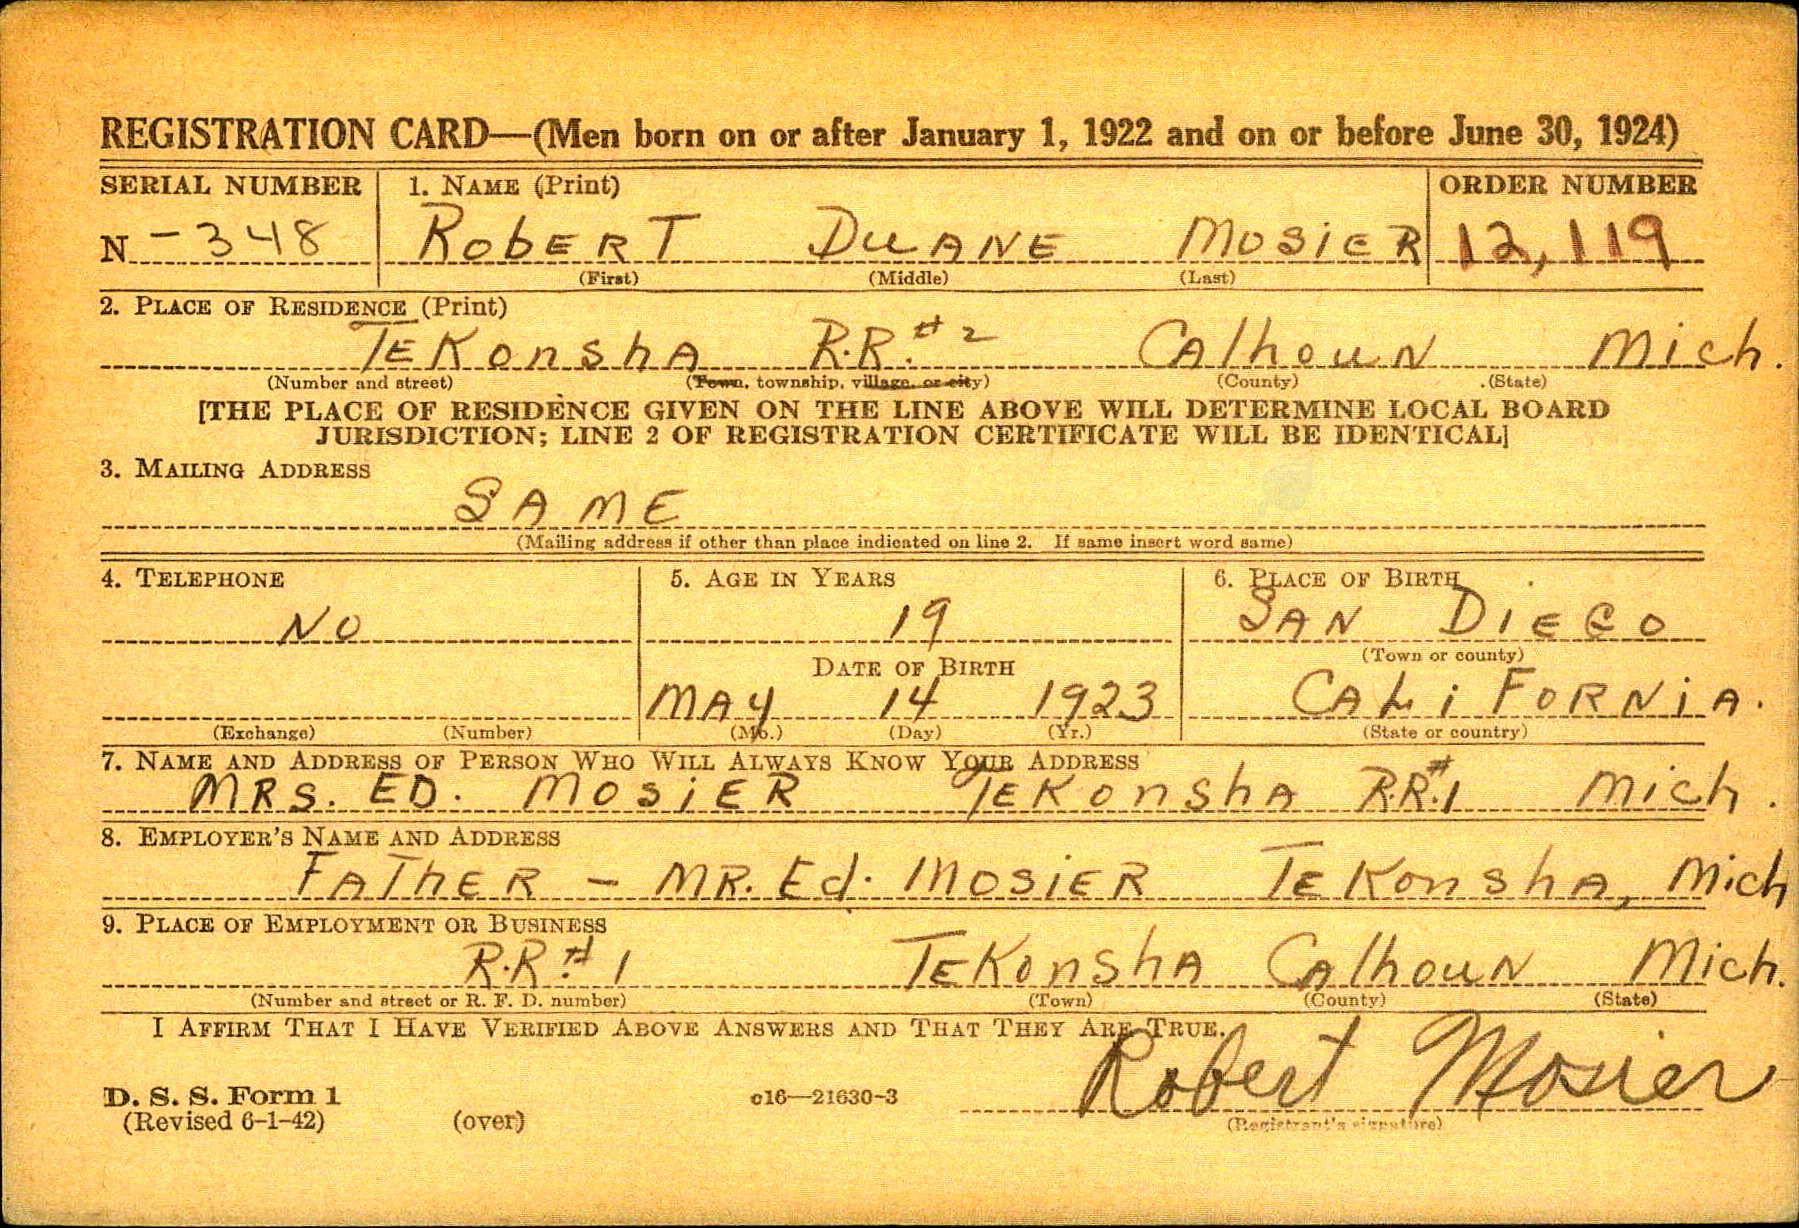 REGISTRATION CARD—(Men born on or after January 1, 1922 and on or before June 30, 1924)
SERIAL NUMBER 1. NAME (Print) ORDER NUMBER
N -348 ROBERT DUANE MOSIER 12,119
(First) (Middle) (Last)
2. PLACE OF RESIDENCE (Print)
TEKonshA R.R.#2 CAlhouN Mich.
(Number and street) (Town, township, village, or city) (County) (State)
[THE PLACE OF RESIDENCE GIVEN ON THE LINE ABOVE WILL DETERMINE LOCAL BOARD
JURISDICTION; LINE 2 OF REGISTRATION CERTIFICATE WILL BE IDENTICAL]
3. MAILING ADDRESS
SAME
(Mailing address if other than place indicated on line 2. If same insert word same)
4. TELEPHONE 5. AGE IN YEARS 6. PLACE OF BIRTH
NO 19 SAN DIEGO
(Town or county)
DATE OF BIRTH
MAy 14 1923 CALiFORNiA.
(Exchange) (Number) (Mo.) (Day) (Yr.) (State or country)
7. NAME AND ADDRESS OF PERSON WHO WILL ALWAYS KNOW YOUR ADDRESS
MRS. ED. MOSiER TEKonshA R.R.#1 Mich.
8. EMPLOYER'S NAME AND ADDRESS
FATHER - MR. Ed. MOSiER TEKonshA, Mich
9. PLACE OF EMPLOYMENT OR BUSINESS
R.R.#1 TEKonshA CAlhouN Mich.
(Number and street or R. F. D. number) (Town) (County) (State)
I AFFIRM THAT I HAVE VERIFIED ABOVE ANSWERS AND THAT THEY ARE TRUE.
Robert Mosier
D. S. S. Form 1 c16—21630-3
(Revised 6-1-42) (over) (Registrant's signature)